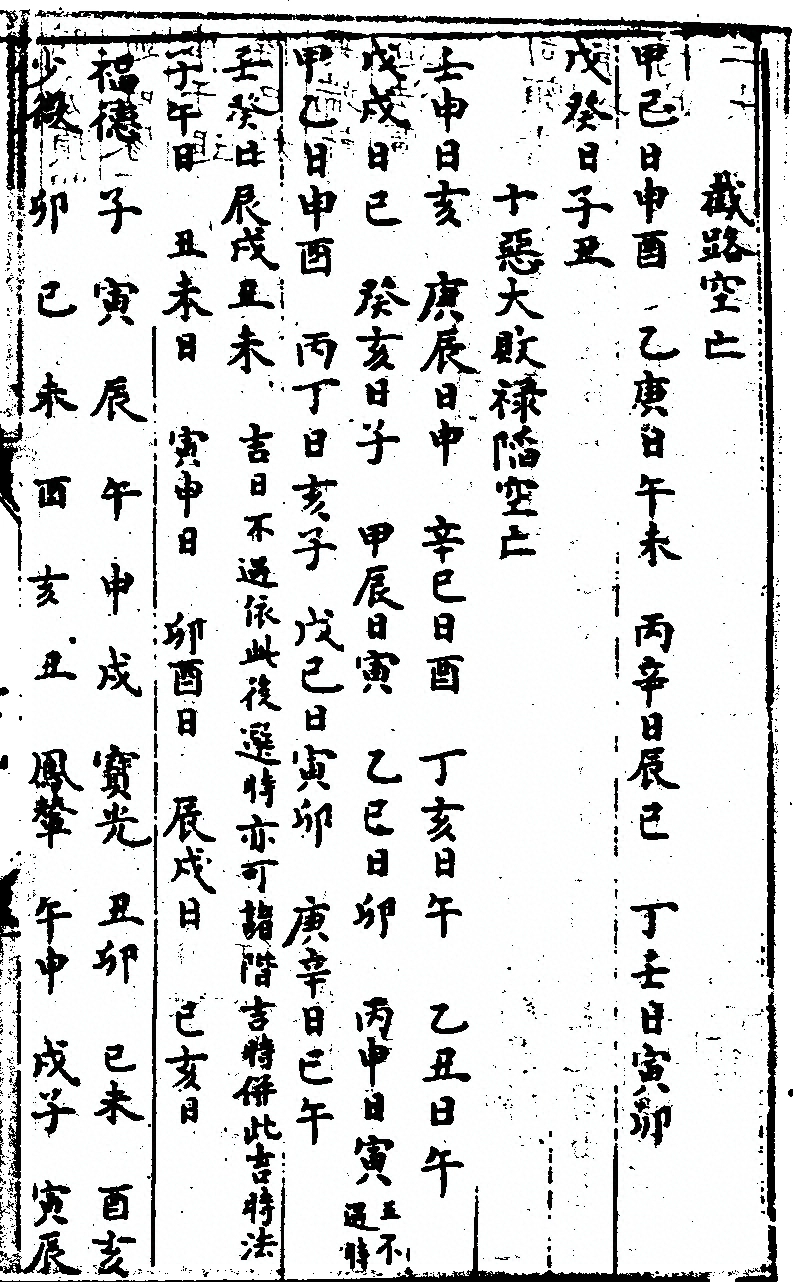 截路空亡
甲己日申酉 乙庚日午未 丙辛日辰巳 丁壬日寅卯
戊癸日子丑
十惡大敗祿陷空亡
壬申日亥 庚辰日申 辛巳日酉 丁亥日午 乙丑日午
戊戌日巳 癸亥日子 甲辰日寅 乙巳日卯 丙申日寅 並不選時
甲乙日申酉 丙丁日亥子 戊己日寅卯 庚辛日巳午
壬癸日辰戌丑未 吉日不過依此後選時亦可諸階吉時併此吉時法
子午日 丑未日 寅申日 卯酉日 辰戌日 巳亥日
福德 子 寅 辰 午 申 戌 寶光 丑卯 巳未 酉亥
少微 卯 巳 未 酉 亥 丑 鳳輦 午申 戌子 寅辰